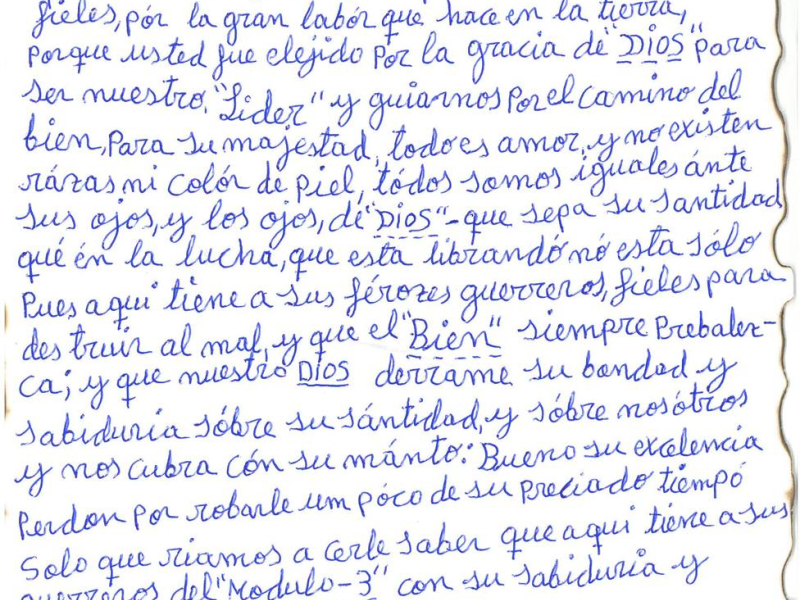 fieles, pór la gran labór que hace en la tierra,
porque usted fue elejido por la gracia dé "DIOS" para
ser nuestro, "Lider" y guiarnos por el camino del
bien, para su majestad, todo es amor, y no existen
rázas ni colór de piel, tódos somos iguales ánte
sus ojos, y los ojos, dé "DIOS" - que sepa su santidad
qué én la lucha, que esta librandó nó esta sólo
Pues aqui tiene a sus férozes guerreros, fieles para
destruir al mal, y que el "Bien" siempre Prebalez-
ca; y que nuestró DIOS derrame su bondad y
sabiduría sóbre su sántidad, y sóbre nosótros
y nos cubra cón su mánto: Bueno su excelencia
Perdon por robarle um póco de su preciado tiempó
Solo que riamos a cerle saber que aqui tiene a sus
guerreros del "Modulo-3" con su sabiduria y